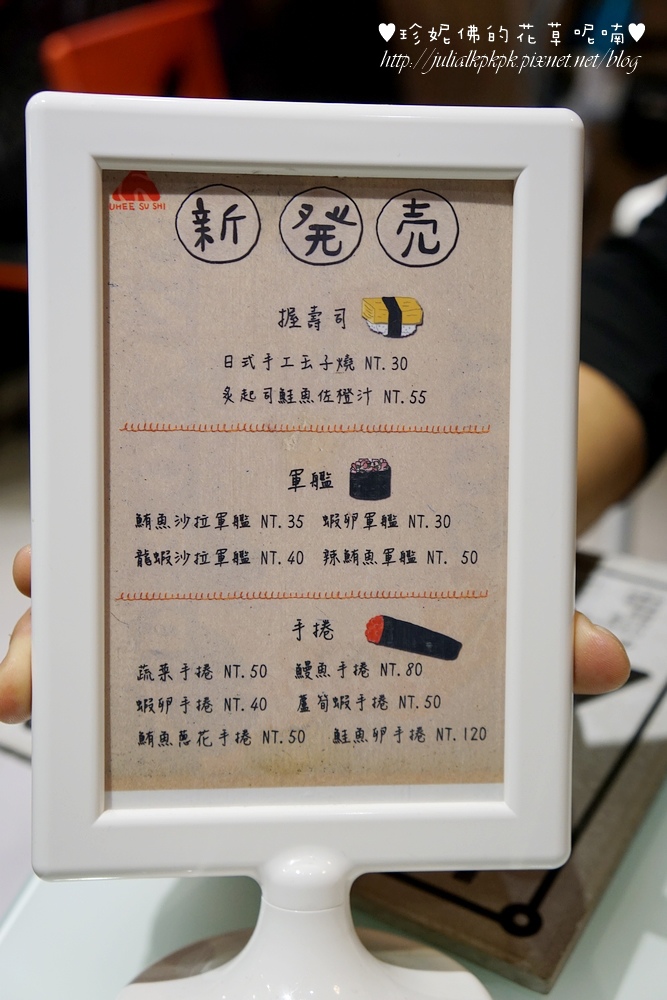 ♥珍妮佛的花草呢喃♥
http://julialkpkpk.pixnet.net/blog
新発売
握壽司
日式手工玉子燒 NT.30
炙起司鮭魚佐橙汁 NT.55
軍艦
鮪魚沙拉軍艦 NT.35 蝦卵軍艦 NT.30
龍蝦沙拉軍艦 NT.40 辣鮪魚軍艦 NT. 50
手捲
蔬菜手捲 NT.50 鰻魚手捲 NT.80
蝦卵手捲 NT.40 蘆筍蝦手捲 NT.50
鮪魚蔥花手捲 NT.50 鮭魚卵手捲 NT.120